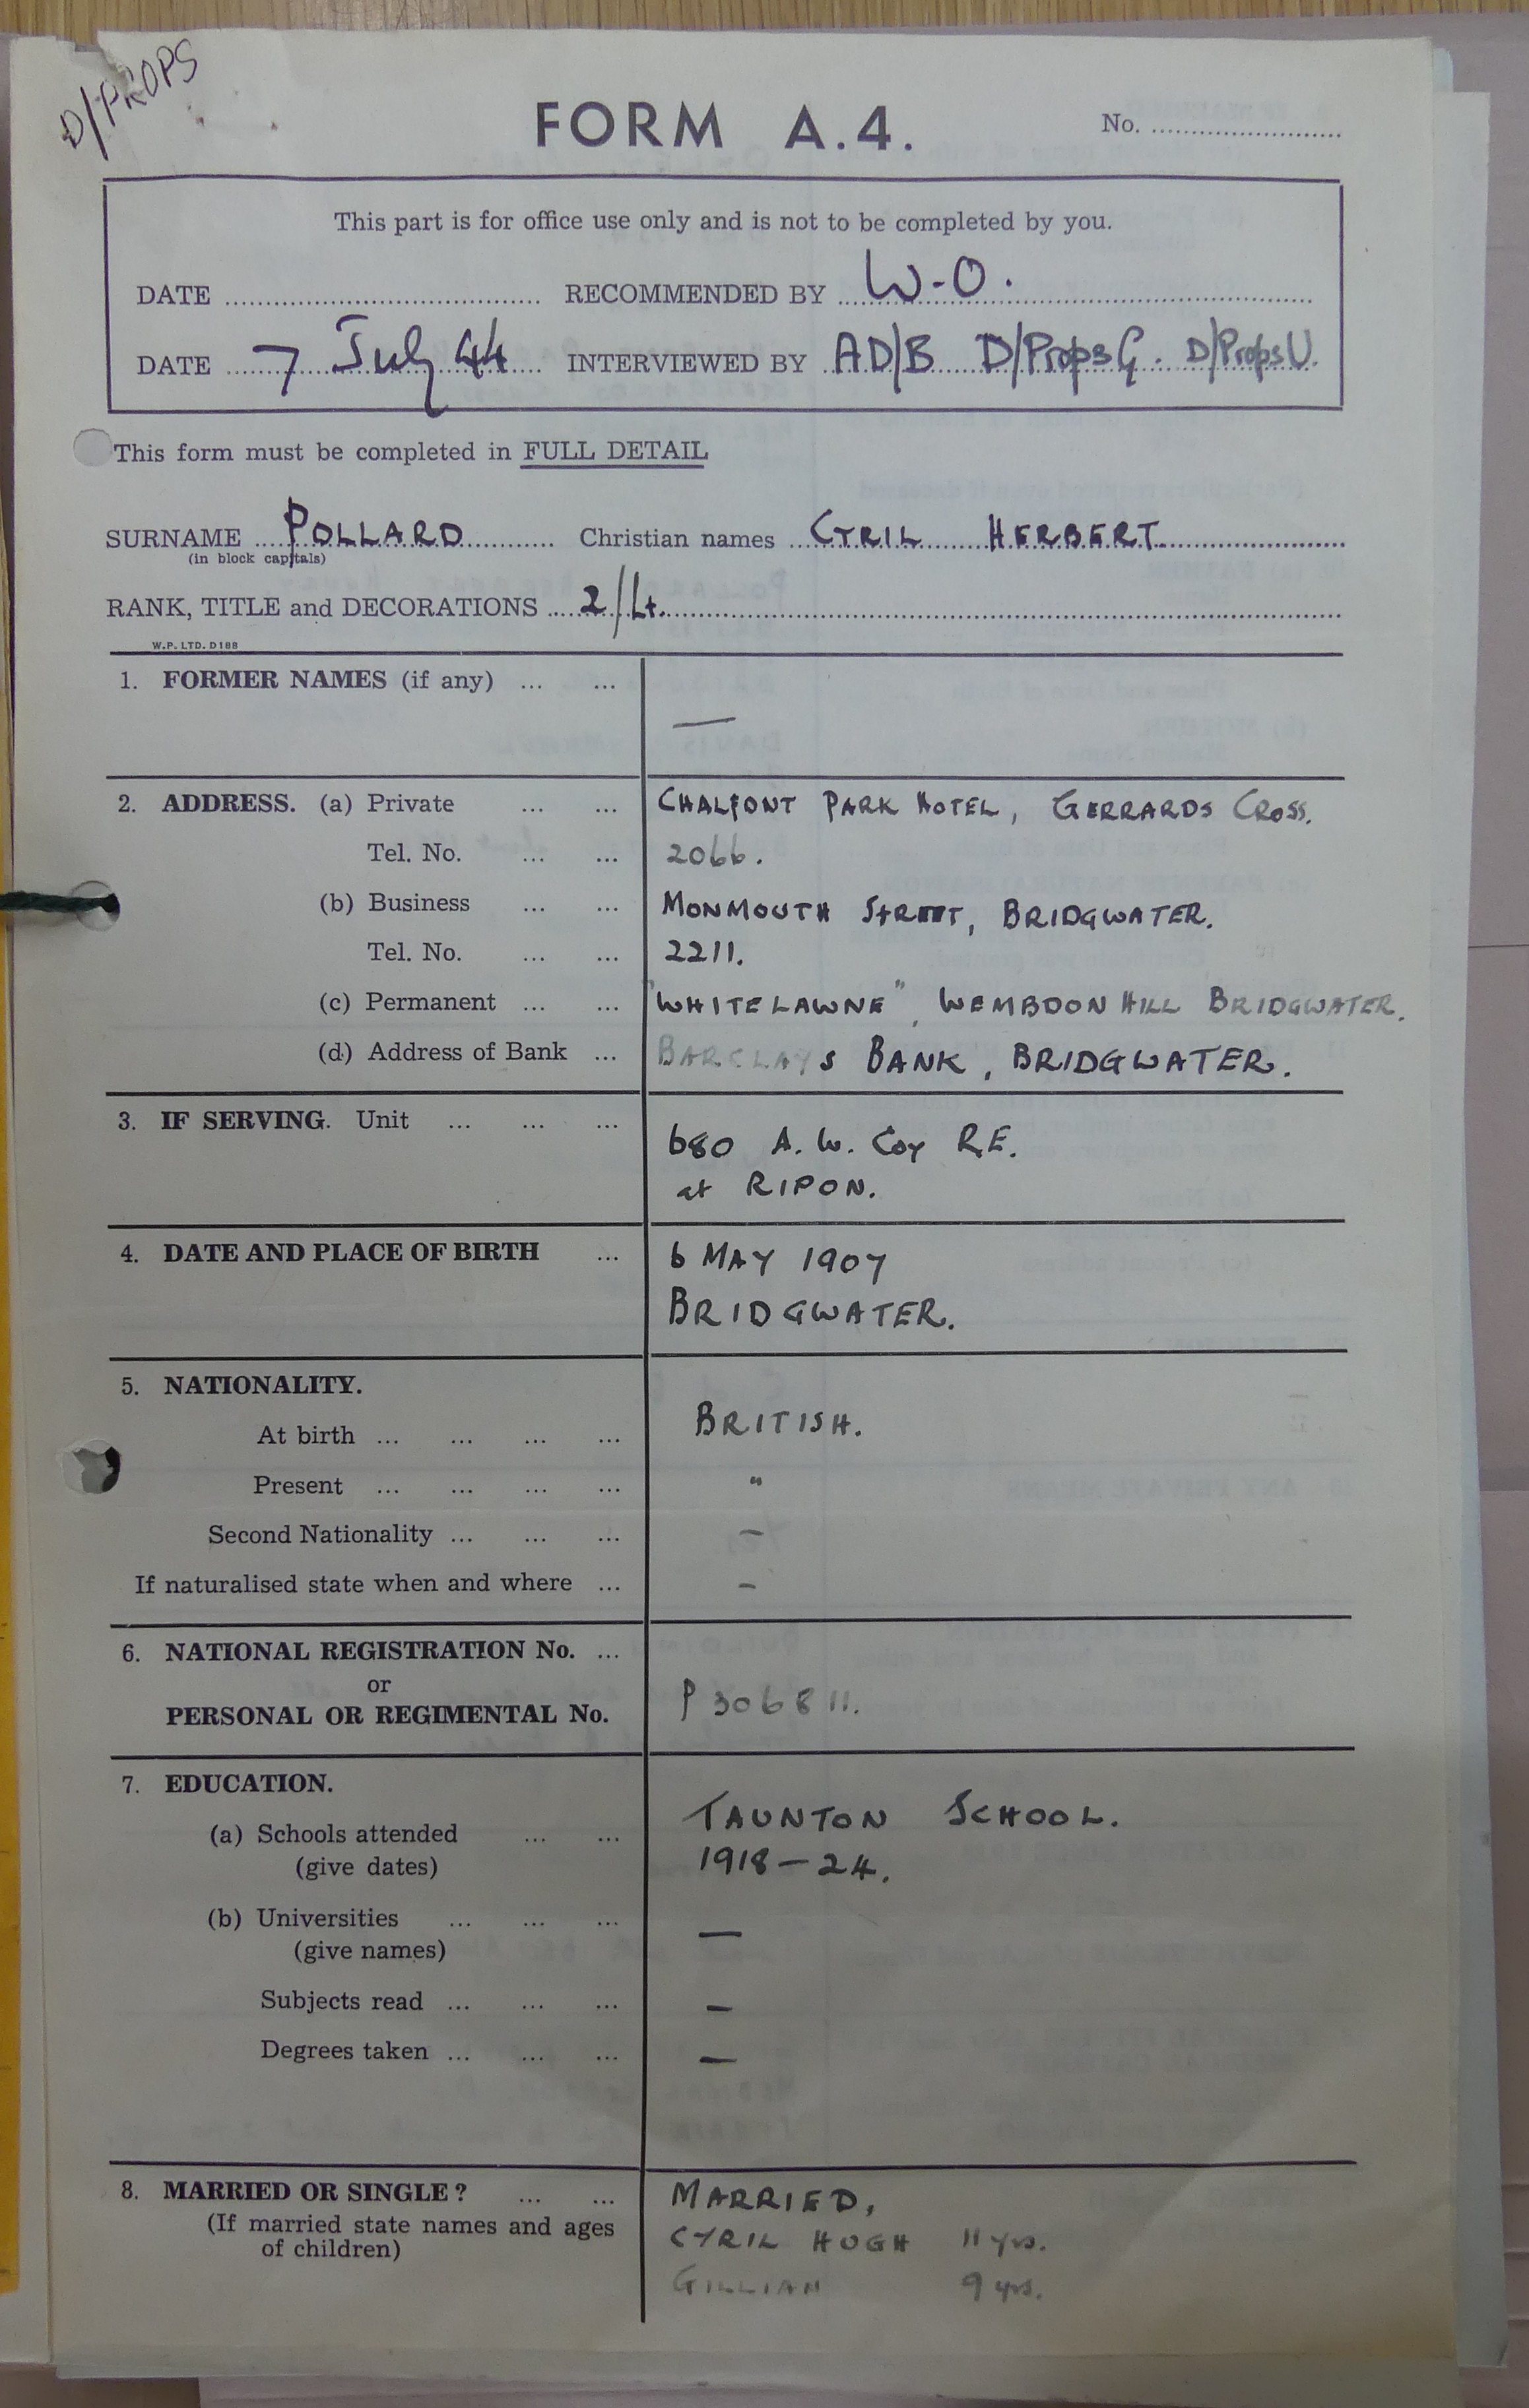 D/PROPS
FORM A.4.
No. ........................
This part is for office use only and is not to be completed by you.
DATE ........................ RECOMMENDED BY W-O.
DATE 7 July 44 INTERVIEWED BY AD/B D/PropsG. D/PropsU.
This form must be completed in FULL DETAIL
SURNAME POLLARD Christian names CYRIL HERBERT
(in block capitals)
RANK, TITLE and DECORATIONS 2/Lt.
W.P. LTD. D188
1. FORMER NAMES (if any) ... ... —
2. ADDRESS. (a) Private ... ... CHALFONT PARK HOTEL, GERRARDS CROSS.
Tel. No. ... ... 2066.
(b) Business ... ... MONMOUTH STREET, BRIDGWATER.
Tel. No. ... ... 2211.
(c) Permanent ... ... "WHITELAWNE", WEMBDON HILL BRIDGWATER.
(d) Address of Bank ... BARCLAYS BANK, BRIDGWATER.
3. IF SERVING. Unit ... ... ... 680 A.W. Coy R.E.
at RIPON.
4. DATE AND PLACE OF BIRTH ... 6 MAY 1907
BRIDGWATER.
5. NATIONALITY.
At birth ... ... ... ... BRITISH.
Present ... ... ... ... "
Second Nationality ... ... ... –
If naturalised state when and where ... –
6. NATIONAL REGISTRATION No. ...
or
PERSONAL OR REGIMENTAL No. P 306811.
7. EDUCATION.
(a) Schools attended ... ... TAUNTON SCHOOL.
(give dates) 1918–24.
(b) Universities ... ... ... —
(give names)
Subjects read ... ... ... –
Degrees taken ... ... ... —
8. MARRIED OR SINGLE? ... ... MARRIED,
(If married state names and ages CYRIL HUGH 11 yrs.
of children) GILLIAN 9 yrs.